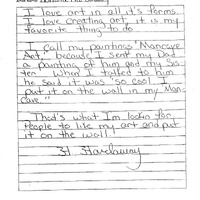 I love art in all it's forms.
I love creating art, it is my
favorite thing to do
I call my paintings "Mancave
Art", because I sent my Dad
a painting of him and my Sis
ter. When I talked to him
he said it was "so cool I
put it on the wall in my Man
Cave."
That's what I'm lookin for,
People to like my art and put
it on the wall.